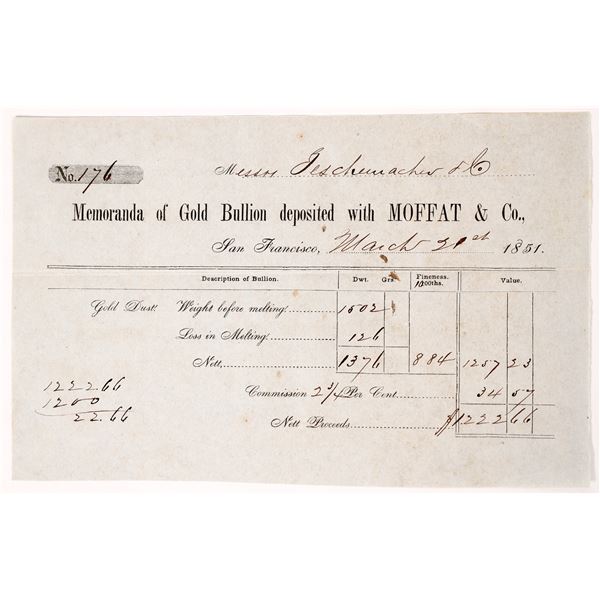 No. 176 Messrs Teschemacher & Co
Memoranda of Gold Bullion deposited with MOFFAT & Co.,
San Francisco, March 21st 1851.
Description of Bullion. Dwt. Grs. Fineness. 1000ths. Value.
Gold Dust. Weight before melting 1502
Loss in Melting 126
Nett, 1376 884 1257 23
1222.66 Commission 2 3/4 Per Cent. 34 57
1200
22.66 Nett Proceeds $1222 66